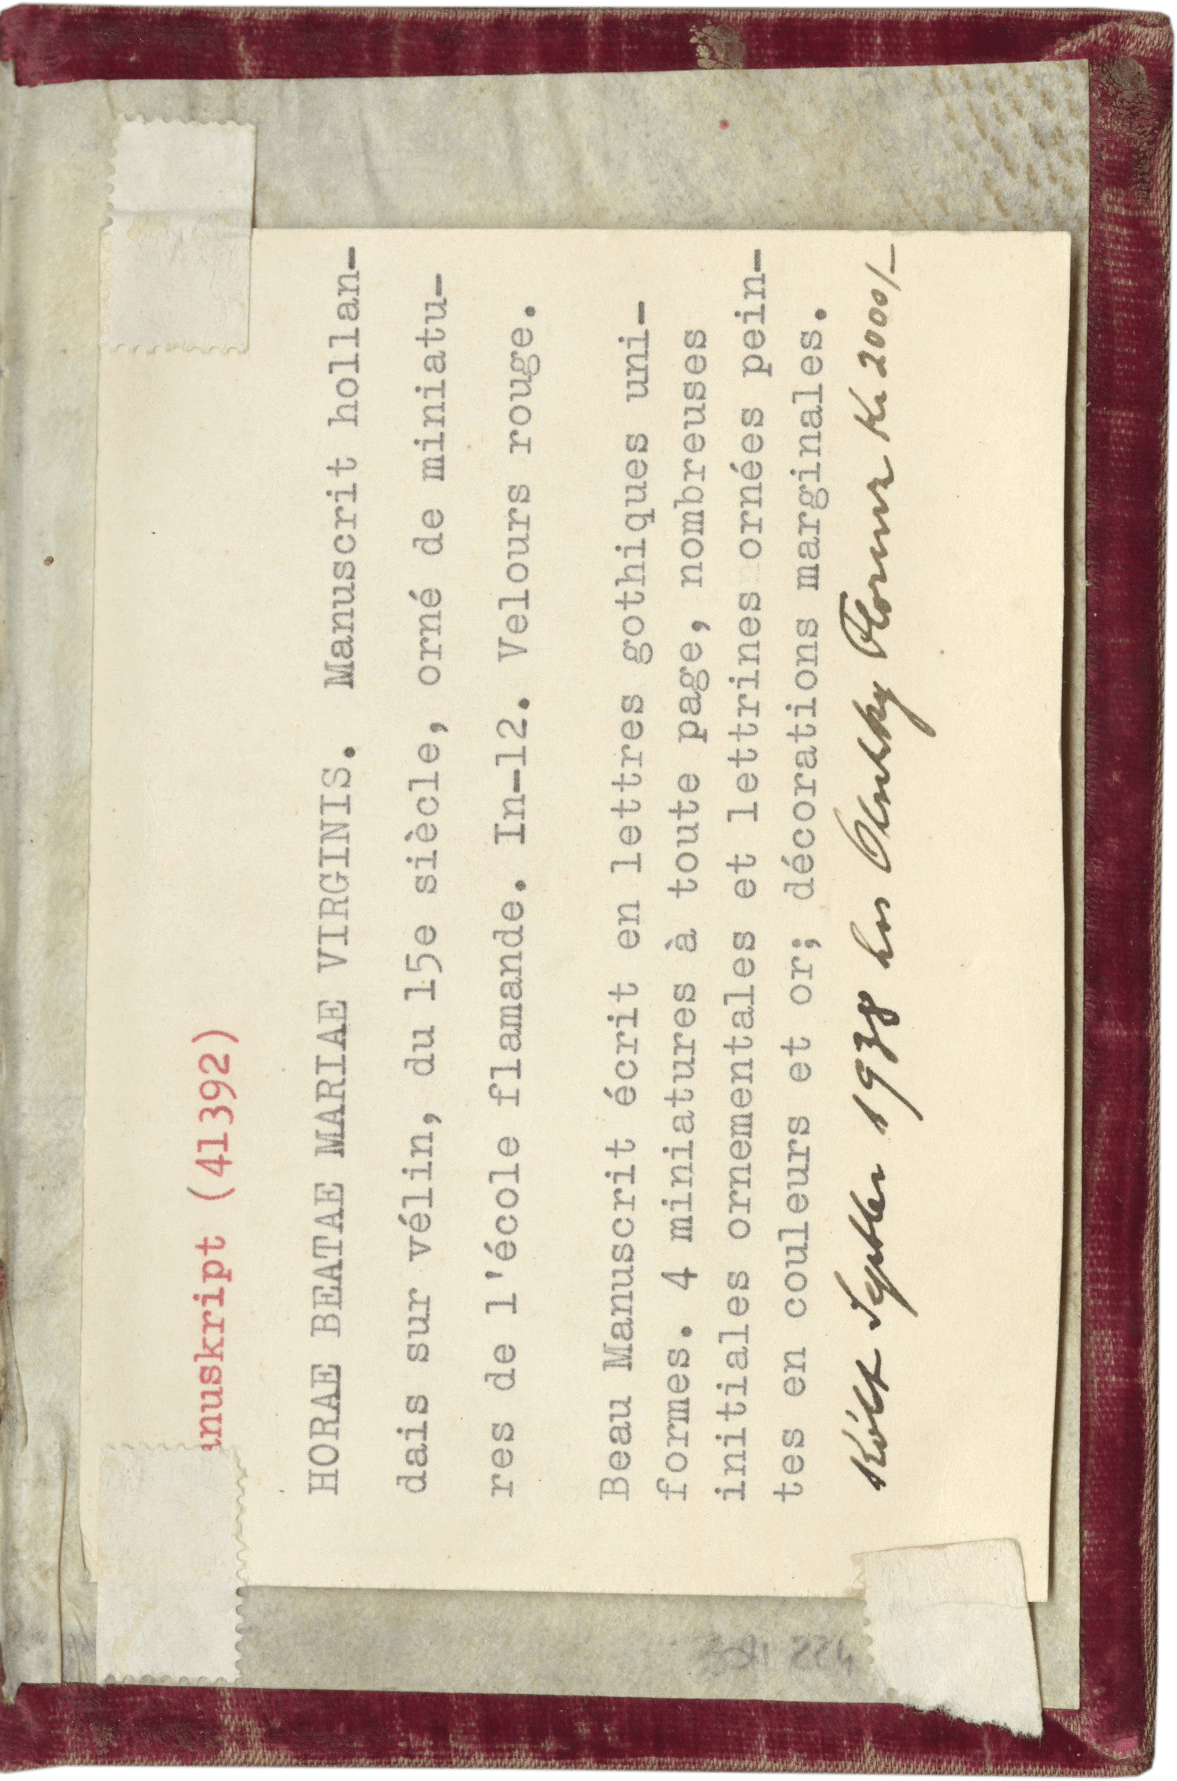 anuskript (41392)
HORAE BEATAE MARIAE VIRGINIS. Manuscrit hollan-
dais sur vélin, du 15e siècle, orné de miniatu-
res de l'école flamande. In-12. Velours rouge.
Beau Manuscrit écrit en lettres gothiques uni-
formes. 4 miniatures à toute page, nombreuses
initiales ornementales et lettrines ornées pein-
tes en couleurs et or; décorations marginales.
Köbt Septbr 1938 hos Olschky Florenz Kr 2000/-